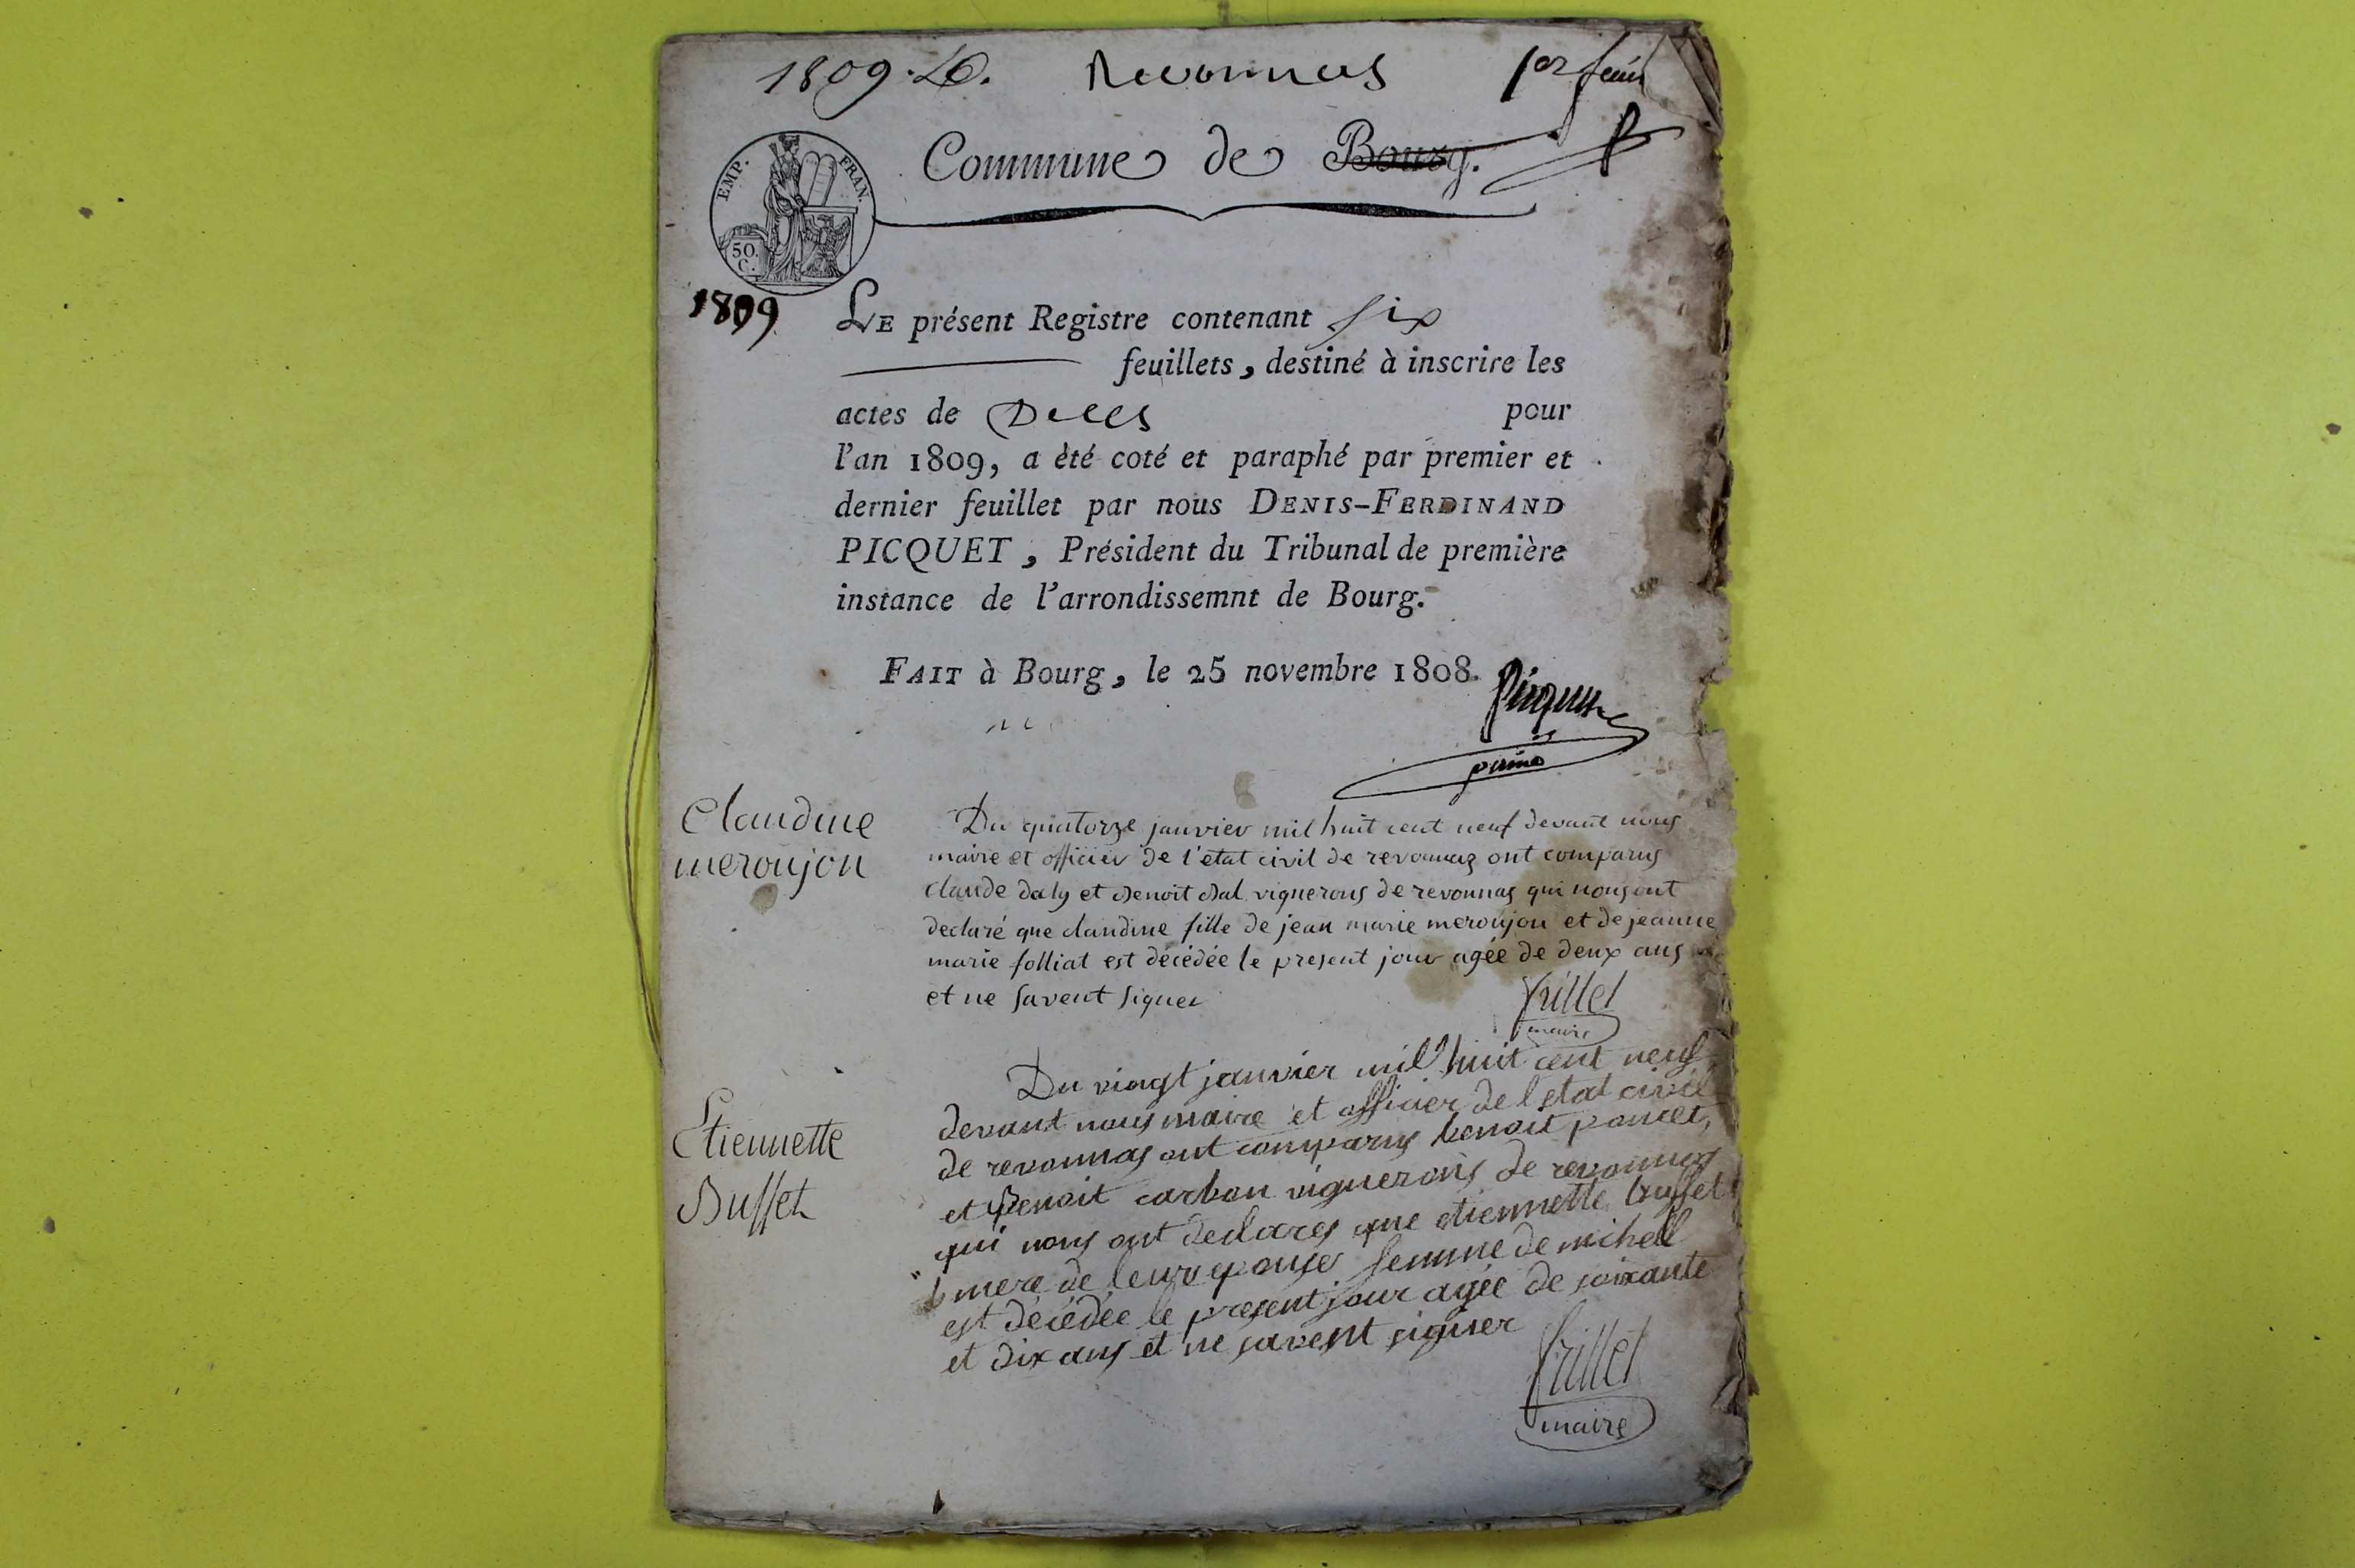 1809. D. Revonnas 1er feuil
Commune de Bourg.
EMP. FRAN.
50. C.
1809
LE présent Registre contenant six
feuillets, destiné à inscrire les
actes de Deces pour
l'an 1809, a été coté et paraphé par premier et
dernier feuillet par nous DENIS-FERDINAND
PICQUET, Président du Tribunal de première
instance de l'arrondissemnt de Bourg.
FAIT à Bourg, le 25 novembre 1808.
Picquet
Claudine
meroujon
Du quatorze janvier mil huit cent neuf devant nous
maire et officier de l'etat civil de revonnas ont comparus
claude daly et Benoit Bal vignerons de revonnas qui nous ont
declaré que claudine fille de jean marie meroujon et de jeanne
marie folliat est décédée le present jour agée de deux ans
et ne savent signer
frillet
maire
Etiennette
Buffet
Du vingt janvier mil huit cent neuf
devant nous maire et officier de l'etat civil
de revonnas ont comparus benoit poncet,
et Benoit carbon vignerons de revonnas
qui nous ont declares que etiennette buffet
mere de leur epouse femme de michell
est décédée le present jour agée de soixante
et dix ans et ne savent signer
frillet
maire